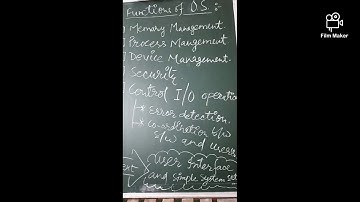 Functions of OS:
Memory Management.
Process Mangement
Device Management.
Security
Control I/O operatio
* Error detection.
* Co-ordination b/w
S/w and
User Interface
and Simple System
Film Maker